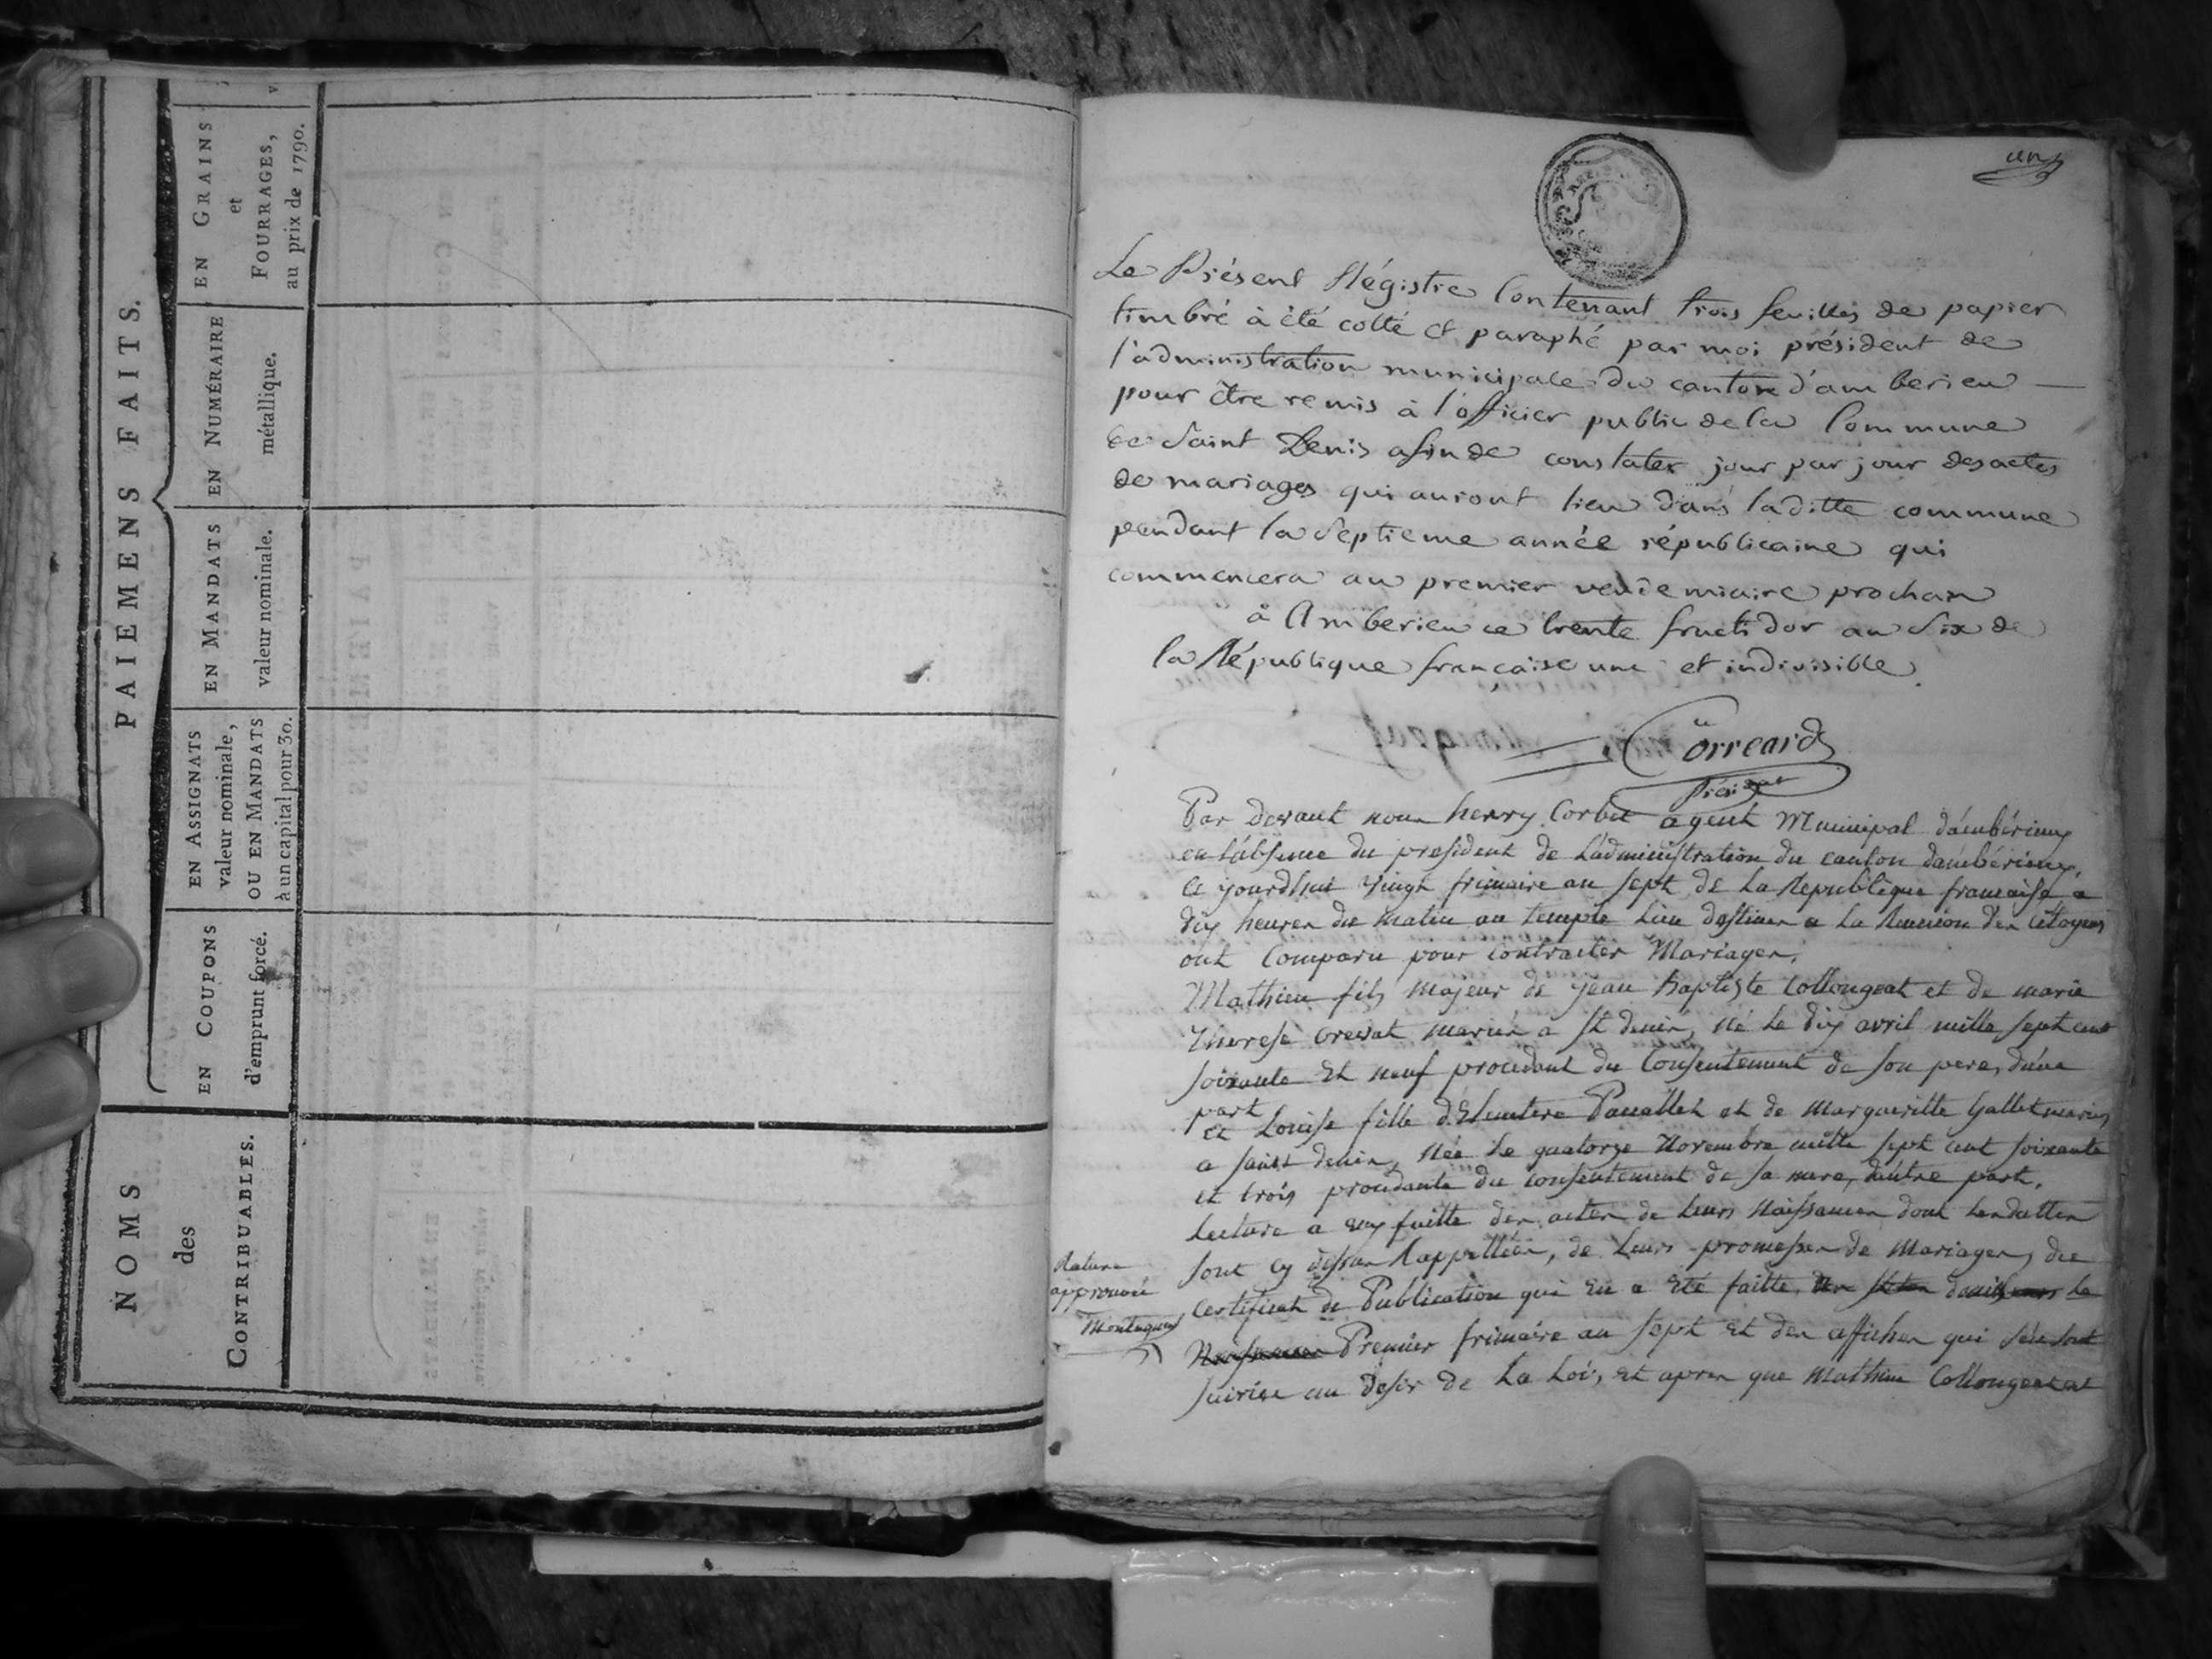 PAIEMENS FAITS.
EN GRAINS
et
FOURRAGES,
au prix de 1790.
EN NUMÉRAIRE
métallique.
EN MANDATS
valeur nominale.
EN ASSIGNATS
valeur nominale,
OU EN MANDATS
à un capital pour 30.
EN COUPONS
d'emprunt forcé.
NOMS
des
CONTRIBUABLES.
un
Le Présent Régistre Contenant trois feuilles de papier
timbré à été cotté et paraphé par moi président de
l'administration municipale du canton d'amberieu
pour être remis à l'officier public de la Commune
de Saint Denis afin de constater jour par jour des actes
de mariages qui auront lieu dans laditte commune
pendant la Septieme année républicaine qui
commencera au premier vendemiaire prochain
à Amberieu ce trente fructidor an Six de
la République française une et indivisible.
Corréard
Président
Par devant nous henry Corbet agent Municipal d'ambérieux
en l'absence du president de L'administration du canton d'ambérieux,
ce yourdhui vingt frimaire an sept de La Republique francaise a
dix heures du matin au temple Lieu destiner a La Reunion des Citoyens
ont Comparu pour contracter Mariages,
Mathieu fils majeur de jean Baptiste Collongeat et de marie
Therese crevat mariés a St denis, né le dix avril mille sept cent
soixante et neuf procedant du Consentement de son pere, d'une
part
et Louise fille d'Eleutere Panallet et de Margueritte Gallet mariés
a saint denis, Née Le quatorze Novembre mille sept cent soixante
et trois procedante du consentement de sa mere, d'autre part,
Lecture a eux faitte des actes de Leurs Naissances dont Les dattes
sont cy dessus Rappellées, de Leurs promesses de Mariages, du
Certificat de Publication qui en a été faitte, le
Premier frimaire an sept et des affiches qui s'en sont
suivies au desir de La Loi, et apres que Mathieu Collongeat et
Rature
approuvée
Montagneux